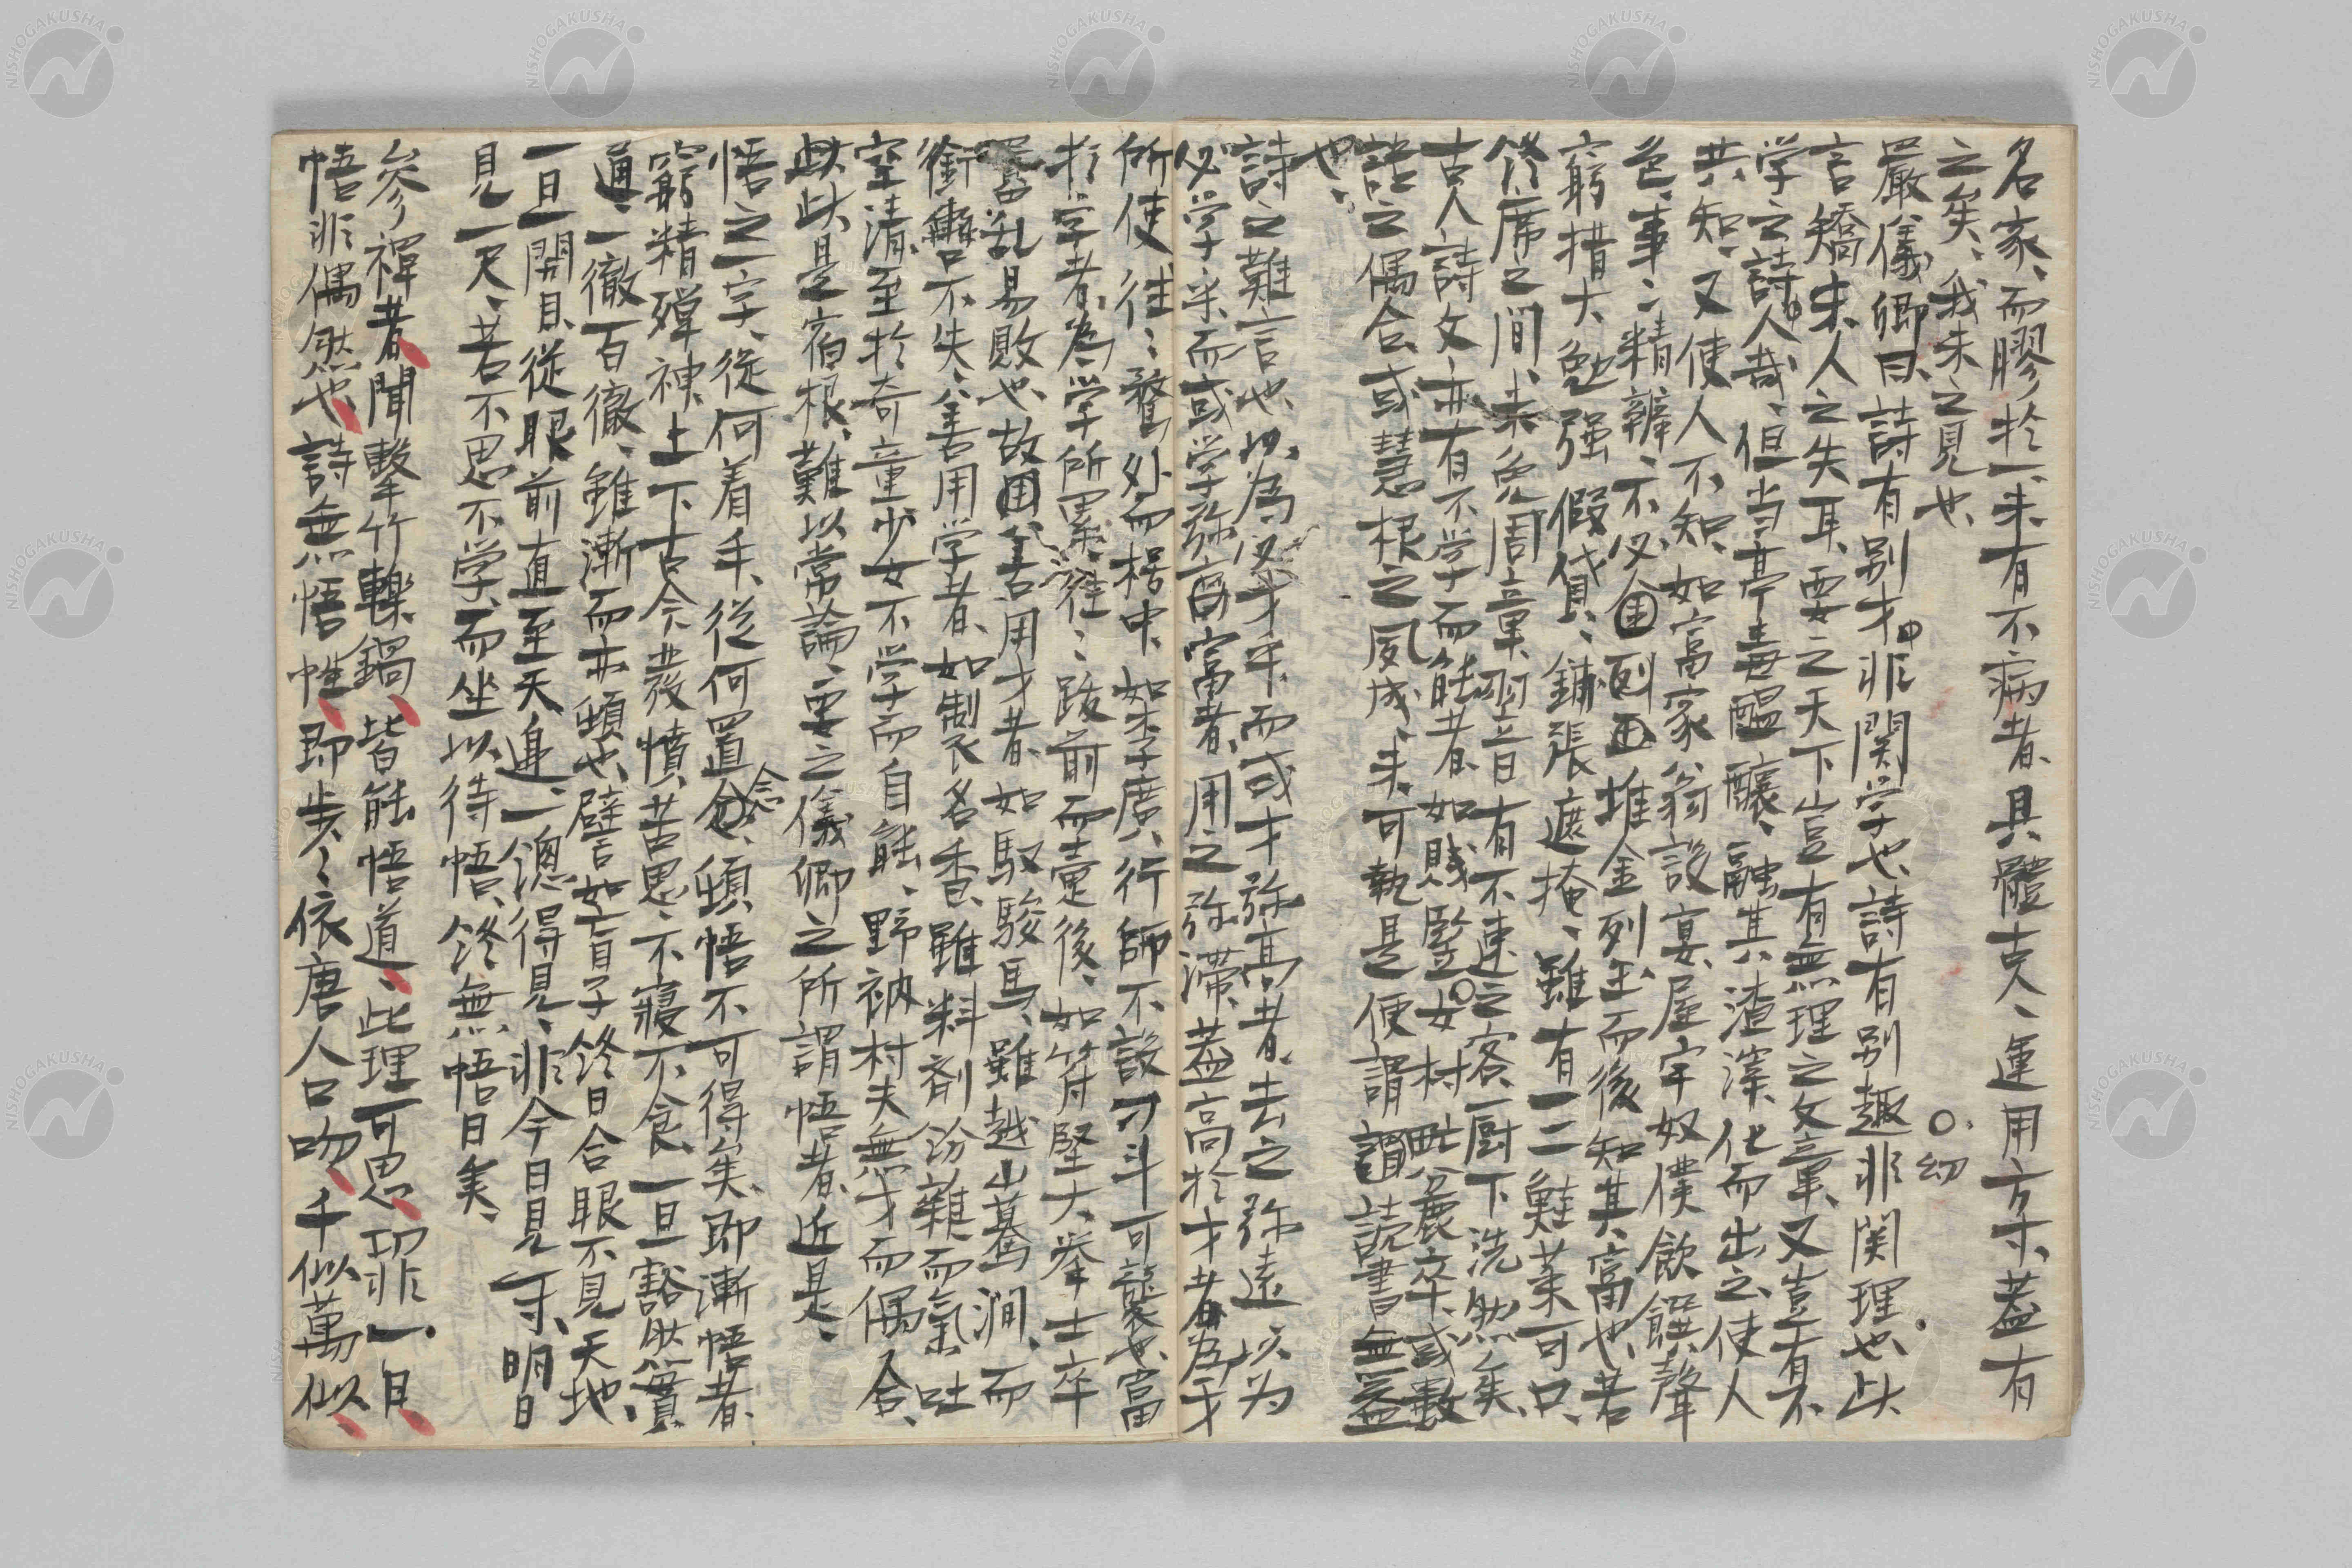 名家、而膠於一、未有不病者、具體古人、運用方寸、蓋有
之矣、我未之見也、
嚴儀卿曰、詩有別才、非関学也、詩有別趣非関理也、此
言矯末人之失耳、要之天下豈有無理之文章、又豈有不
学之詩人哉、但当亭毒醞釀、融其渣滓、化而出之、使人
共知、又使人不知、如富家翁設宴、屋宇奴僕飲饌聲
色、事〻精辦、不必堆金列玉、而後知其富也、若
窮措大勉强假貸、鋪張遮掩、雖有一二鮭菜可口、
終席之間、未免周章、羽音有不速之客、厨下洗然矣、
古人詩文亦有不学而能者、如賤豎女村氓麁卒、或数
語之偶合、或慧根之夙成、未可執是便謂讀書無益
也、
詩之難言也、以為必才乎、而或才弥高者、去之弥遠、以为
必学乎、而或学弥富者、用之弥滞、蓋高於才者、為才
所使、往〻騖外而楛中、如李広行師、不設刁斗可襲也、富
於学者、為学所累、往〻跋前而疐後、如苻堅大挙、士卒
乱易敗也、故善用才者、如馭駿馬、雖越山驀澗、而
銜轡不失、善用学者、如製名香、雖料剤紛雜、而氣吐
空清、至於奇童少女、不学而自能、野衲村夫無才而偶合、
此是宿根、難以常論、要之儀卿之所謂悟者、近是、
悟之一字、從何着手、從何置念、頓悟不可得矣、即漸悟者
窮精殫神、上下古今、發憤苦思、不寢不食、一旦豁然貫
通、一徹百徹、雖漸而亦頓也、譬如盲子終日合眼不見天地、
一旦開目、從眼前直至天邊、一總得見、非今日見一寸、明日
見一尺、若不思不学、而坐以待悟、終無悟日矣、
參禪者、聞擊竹轢鍋、皆能悟道、此理可思、却非一日
悟非偶然也、詩無悟性、即步〻依唐人口吻、千似萬似、